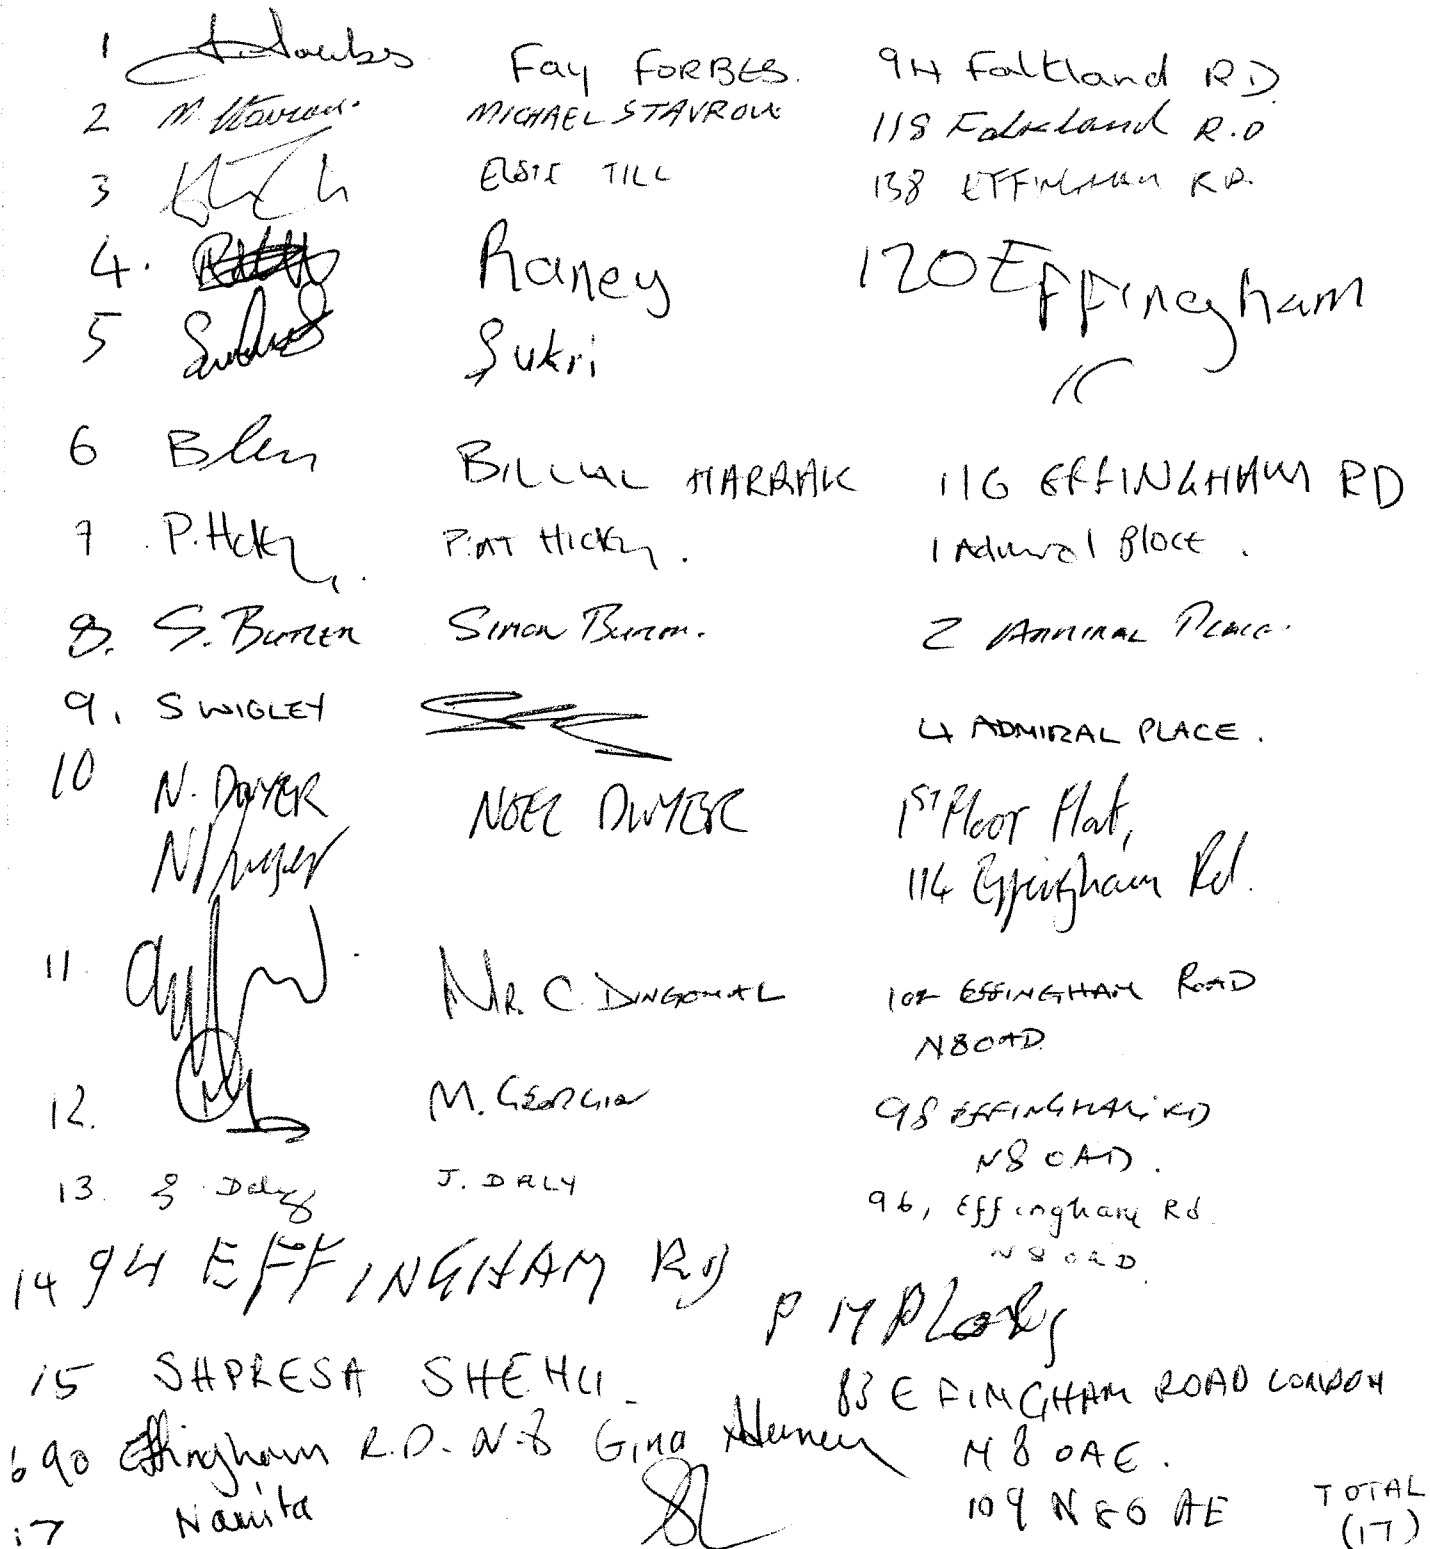 1 Fay FORBES. 94 Falkland RD.
2 M. Stavrou. MICHAEL STAVROU 118 Falkland R.D
3 ELSIE TILL 138 EFFINGHAM RD.
4. Raney 120 Effingham
5 Sukri "
6 BILLAL HARRAK 116 EFFINGHAM RD
7 P. Hickey. PAT HICKEY. 1 Admiral Place.
8. S. BUTLER Simon Butler. 2 ADMIRAL PLACE.
9. S WIGLEY 4 ADMIRAL PLACE.
10 N. DWYER NOEL DWYER 1ST Floor Flat,
N Dwyer 114 Effingham Rd.
11. MR. C. DINGOMAL 102 EFFINGHAM ROAD
N8 0AD.
12. M. GEORGIOU 98 EFFINGHAM RD
N8 0AD.
13. J. Daly J. DALY 96, Effingham Rd.
N8 0AD.
14 94 EFFINGHAM RD
P M
15 SHPRESA SHEHU 83 EFINGHAM ROAD LONDON
N8 0AE.
16 90 Effingham R.D. N.8 Gina
17 Namita 109 N8 0AE TOTAL
(17)